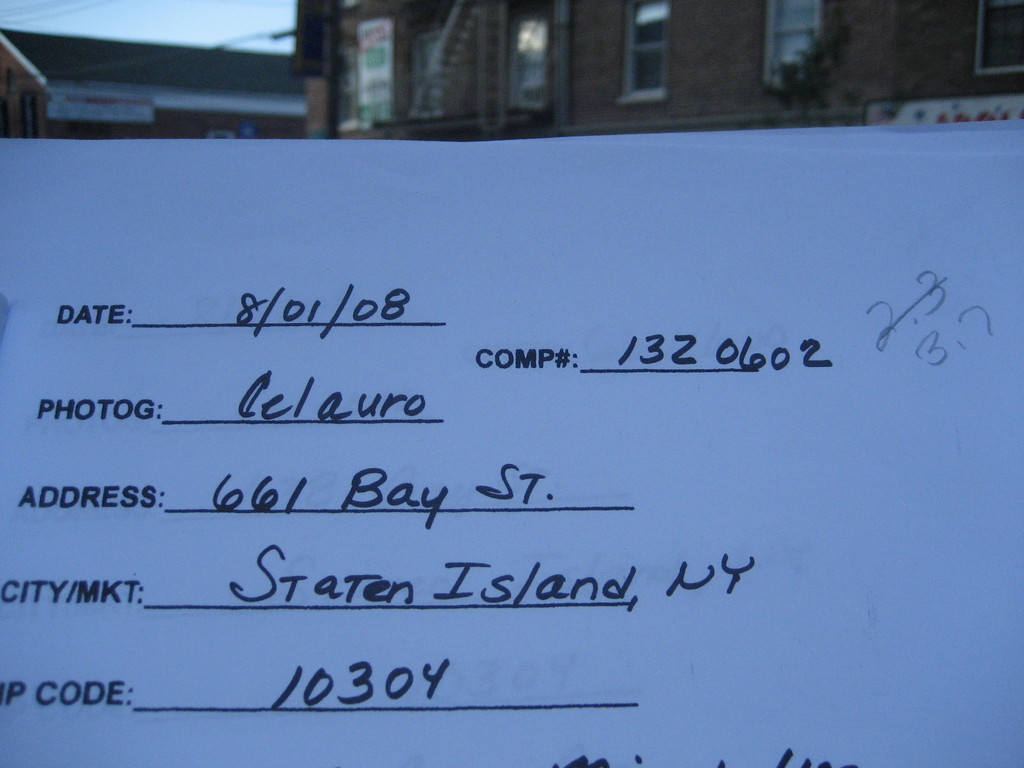 DATE: 8/01/08
COMP#: 1320602
PHOTOG: Celauro
ADDRESS: 661 Bay ST.
CITY/MKT: STaTen Island, NY
IP CODE: 10304